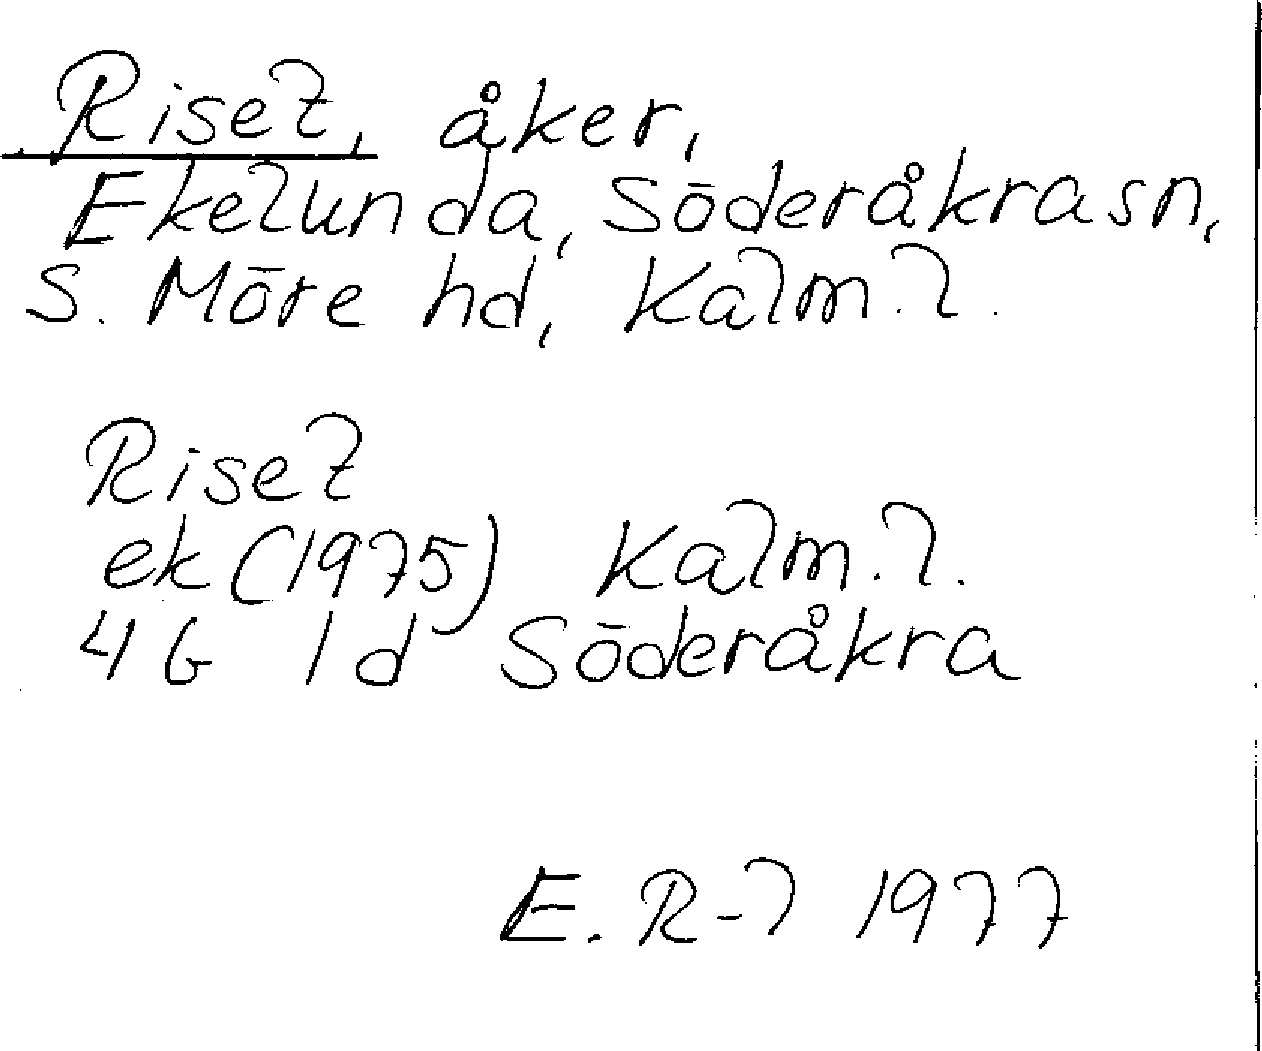 Riset, åker,
Ekelunda, Söderåkra sn,
S. Möre hd, Kalm. l.
Riset
ek (1975) Kalm. l.
4G 1d Söderåkra
E. R-l 1977